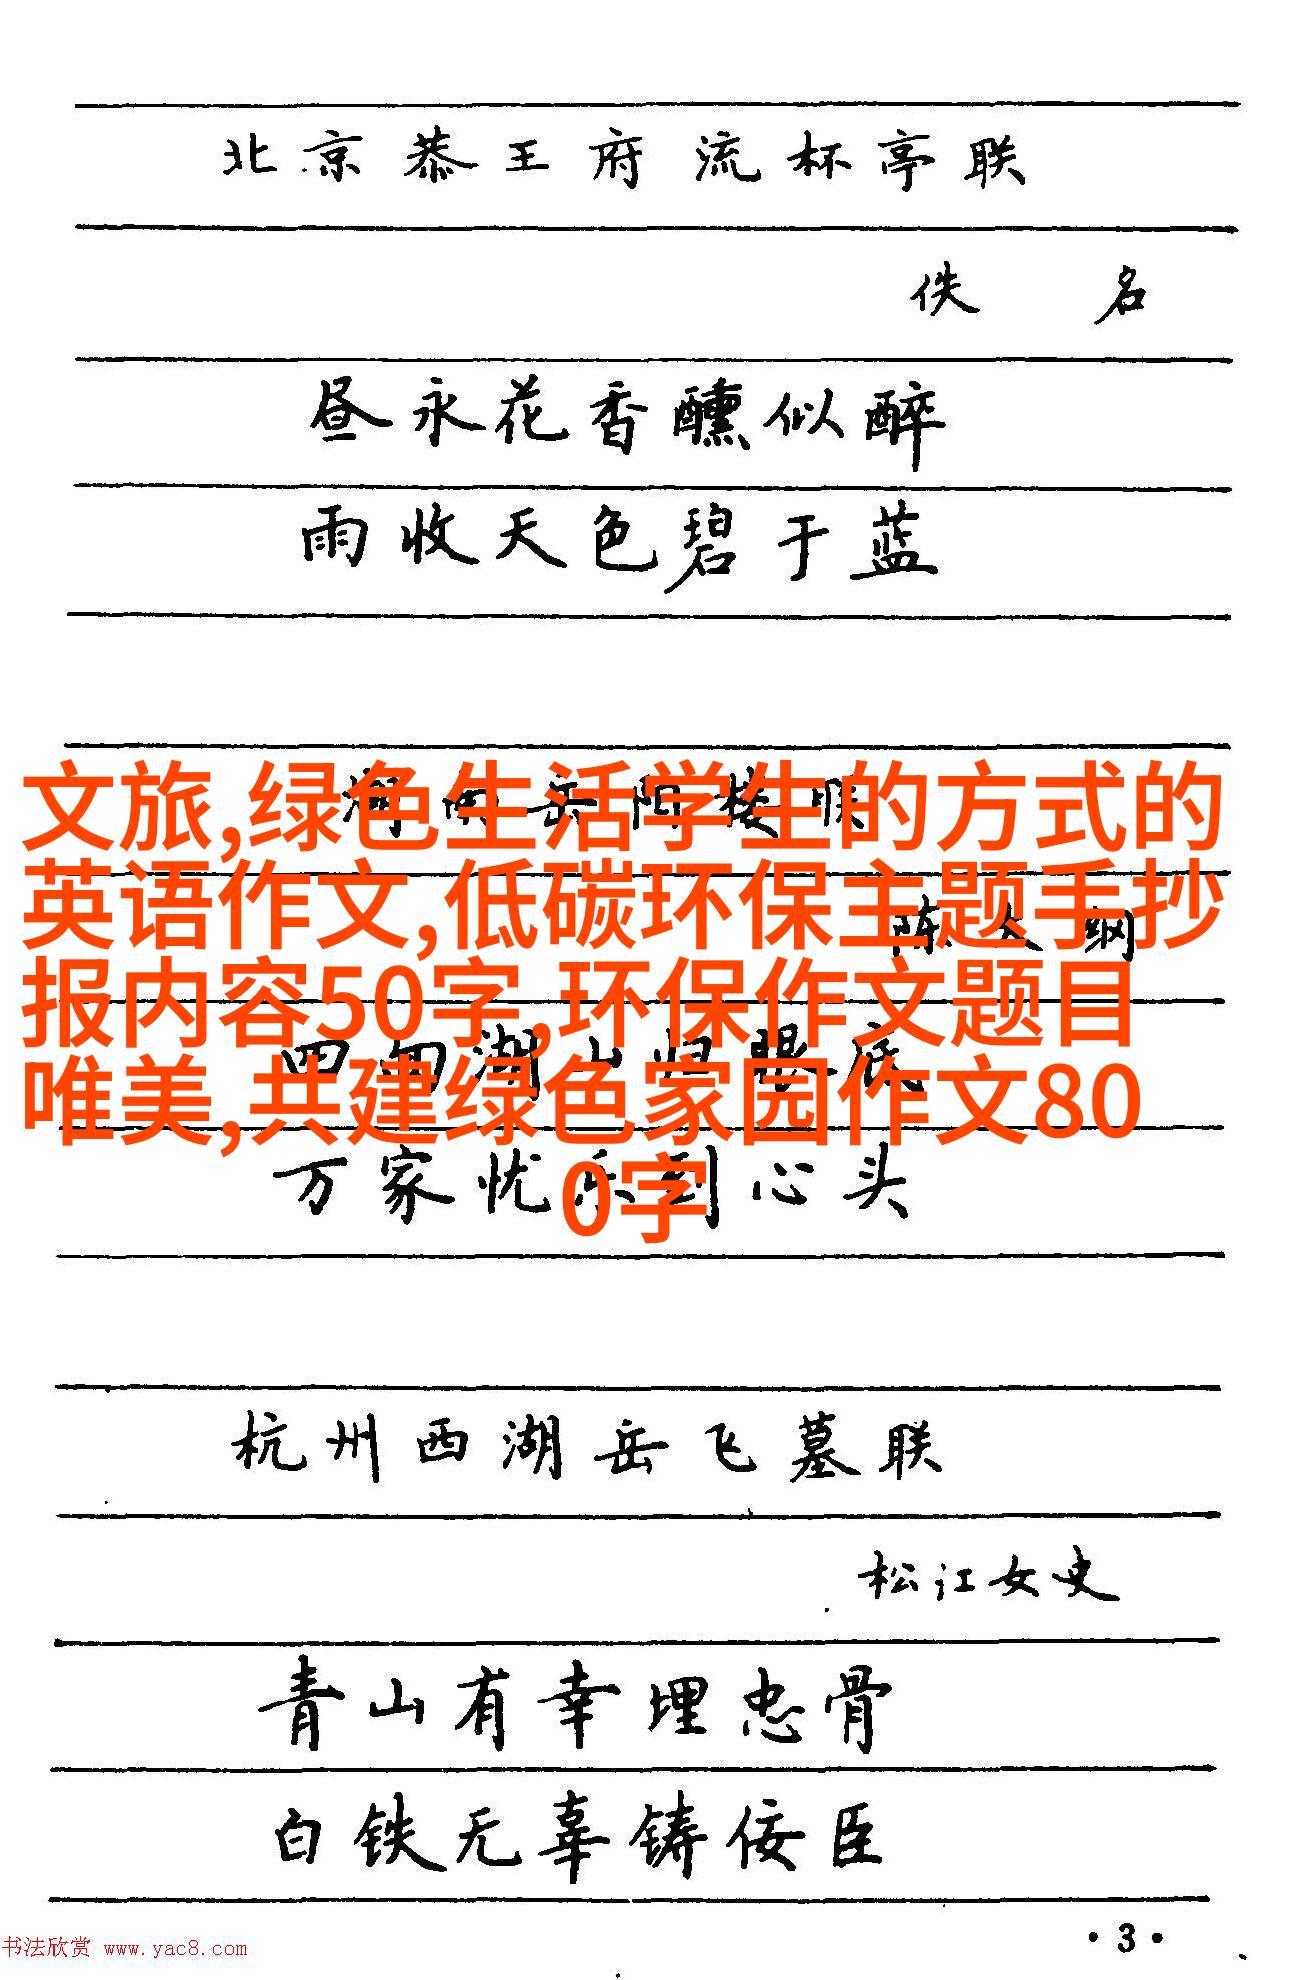 北京恭王府流杯亭联
佚 名
昼永花香醺似醉
雨收天色碧于蓝
文旅,绿色生活学生的方式的
英语作文,低碳环保主题手抄
报内容50字,环保作文题目
唯美,共建绿色家园作文80
0字
湖南岳阳楼联
陈大纲
四面湖山归眼底
万家忧乐到心头
杭州西湖岳飞墓联
松江女史
青山有幸埋忠骨
白铁无辜铸佞臣
·3·
书法欣赏 www.yac8.com